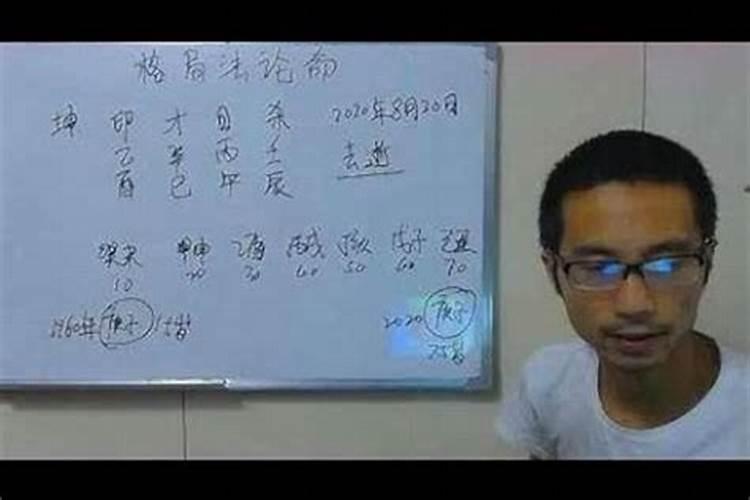 格局法论命
坤 印 才 日 杀 2020年8月20日
乙 辛 丙 壬 去逝
酉 巳 午 辰
甲申 乙酉 丙戌 戊子 己丑
10 20 30 40 50 60 70
1960年 庚子 15岁 2020 庚子
75岁